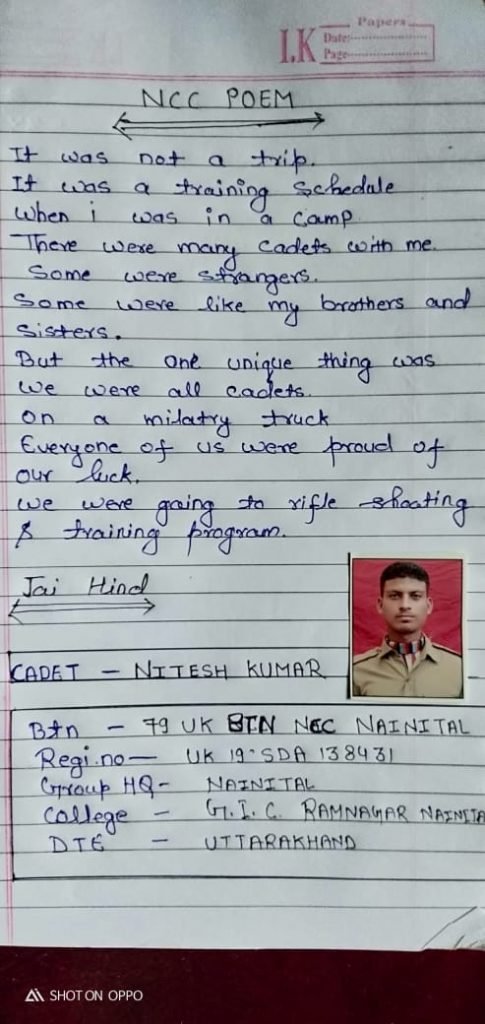 Papers
I.K
Date:
Page
NCC POEM
It was not a trip.
It was a training schedule
when i was in a camp
There were many cadets with me.
Some were strangers.
Some were like my brothers and
sisters.
But the one unique thing was
we were all cadets.
on a milatry truck
Everyone of us were proud of
our luck.
we were going to rifle shooting
& training program.
Jai Hind
CADET - NITESH KUMAR
Btn - 79 UK BTN NCC NAINITAL
Regi.no- UK 19-SDA 138431
Group HQ- NAINITAL
college - G.I.C. RAMNAGAR NAINITA
DTE - UTTARAKHAND
SHOT ON OPPO